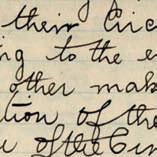 their Circ
ing to the e
other mak
tion of the
of the Cin